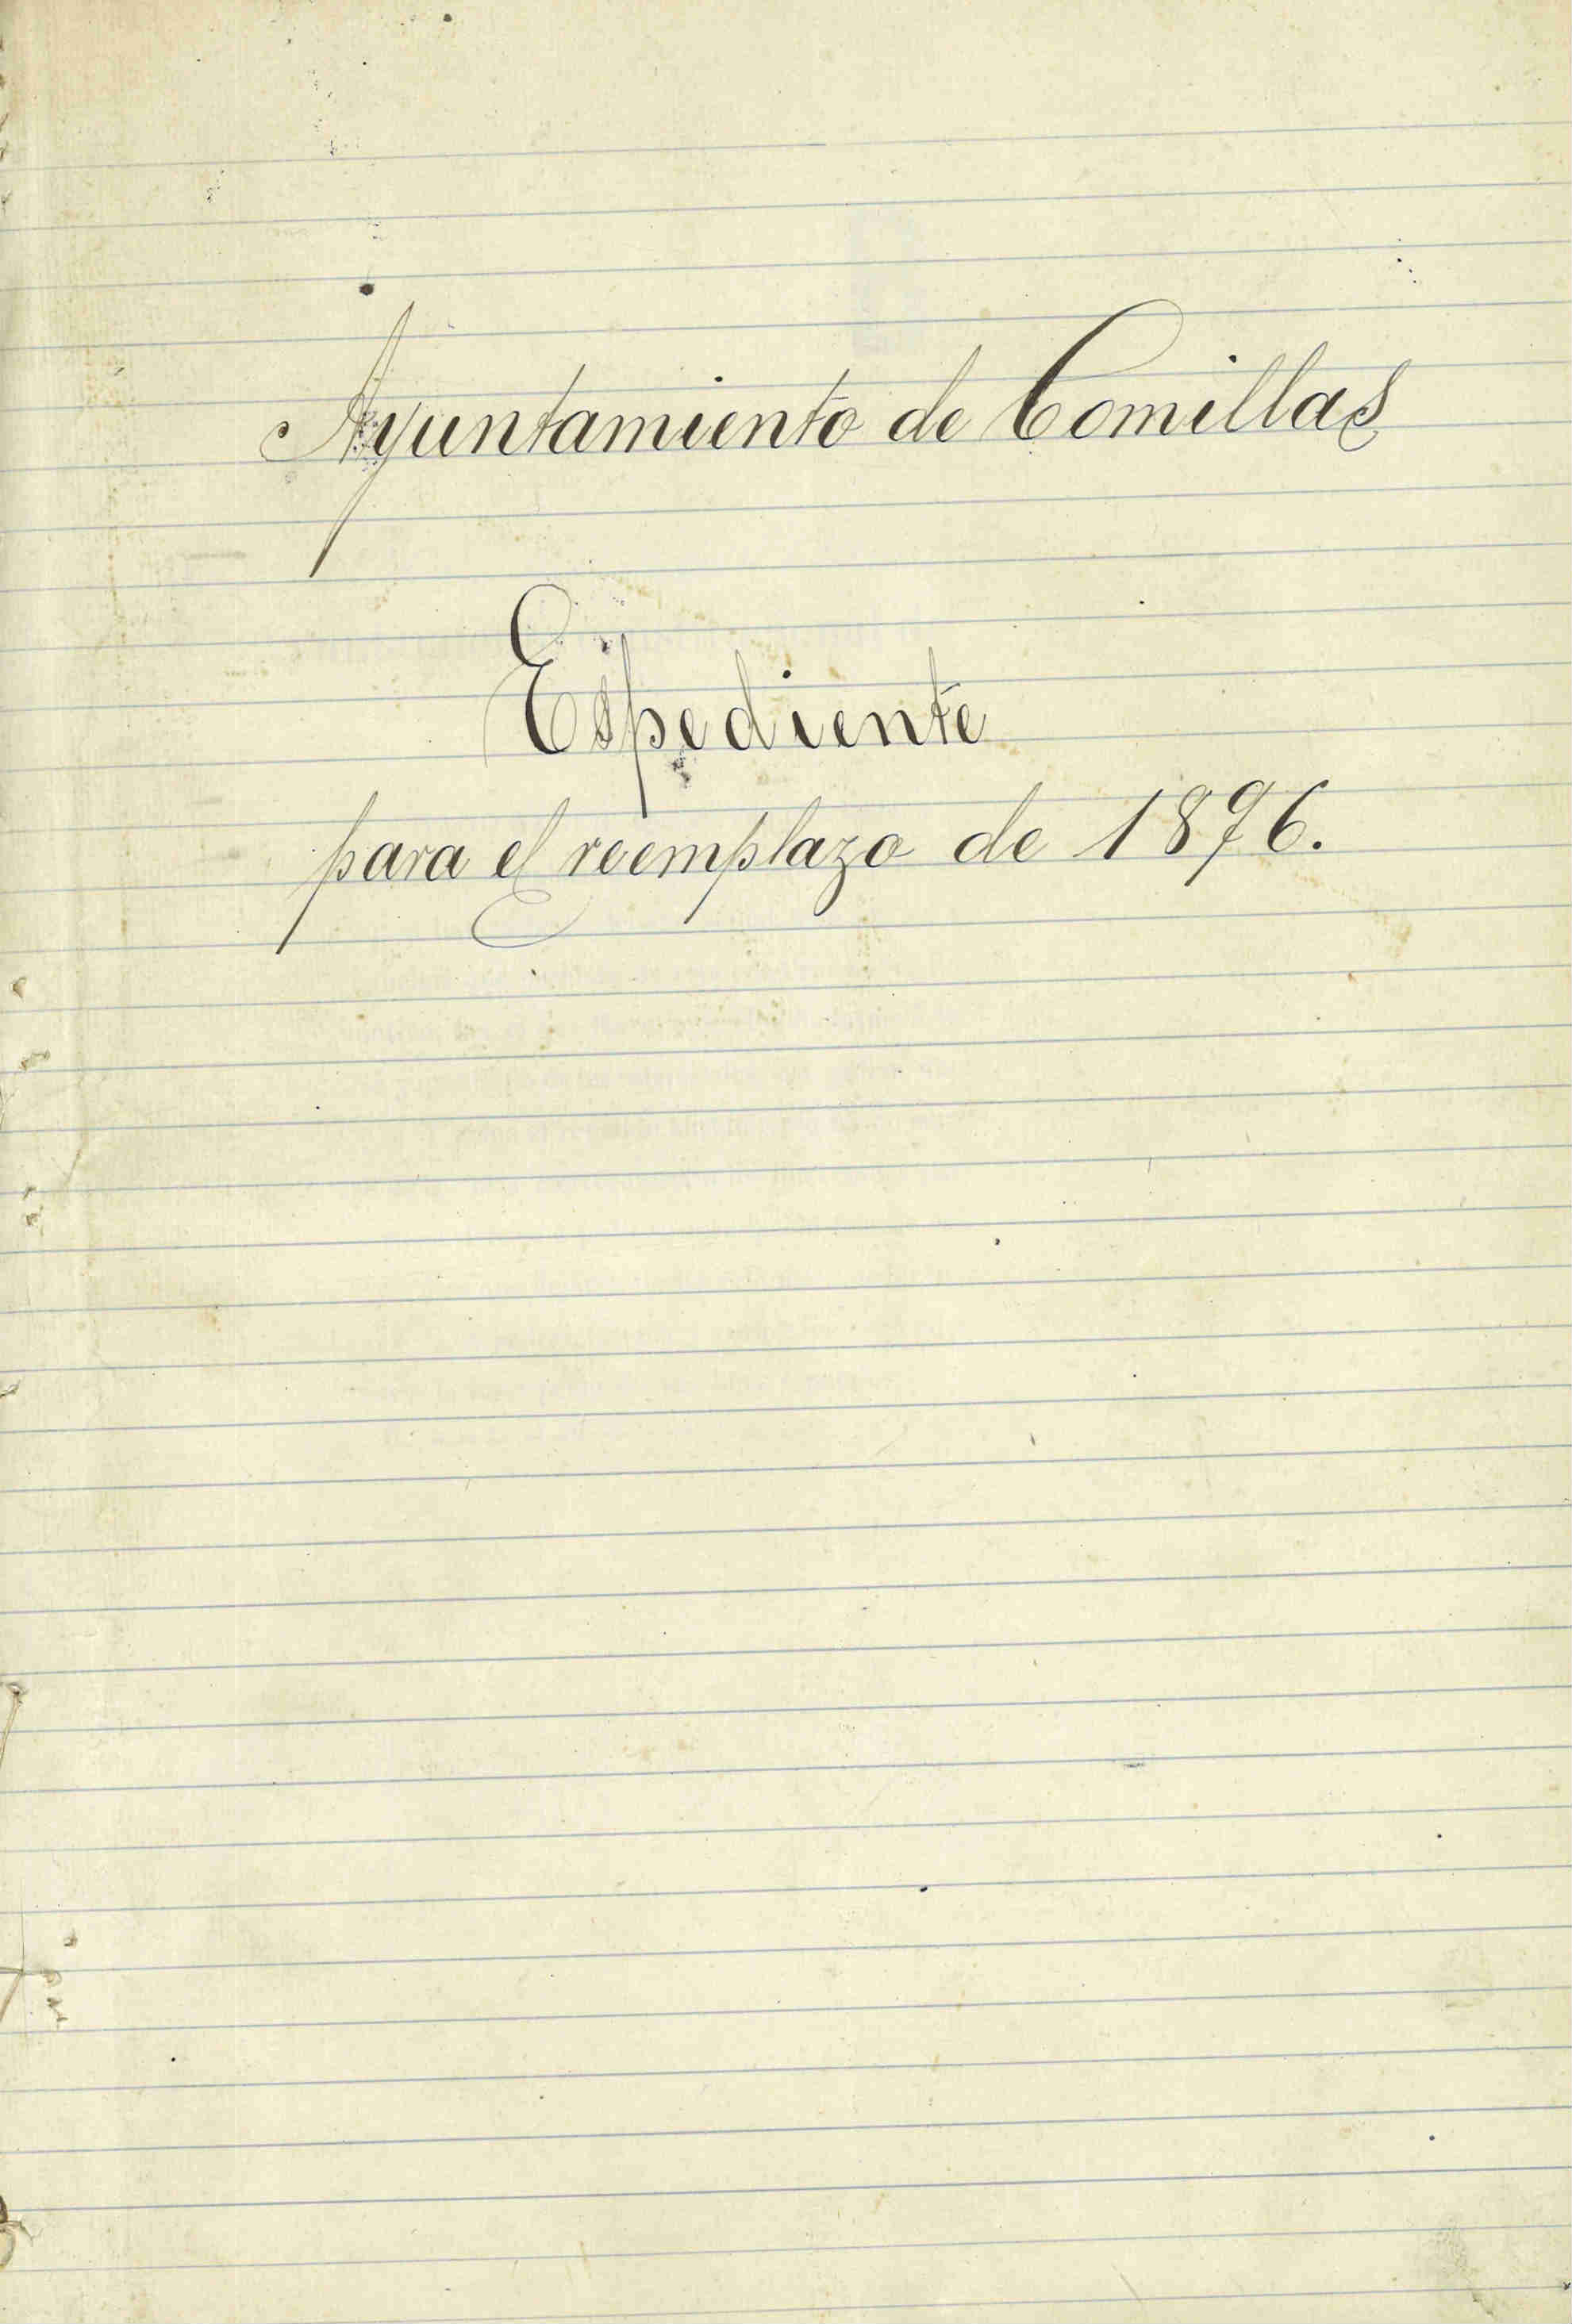 Ayuntamiento de Comillas
Espediente
para el reemplazo de 1896.